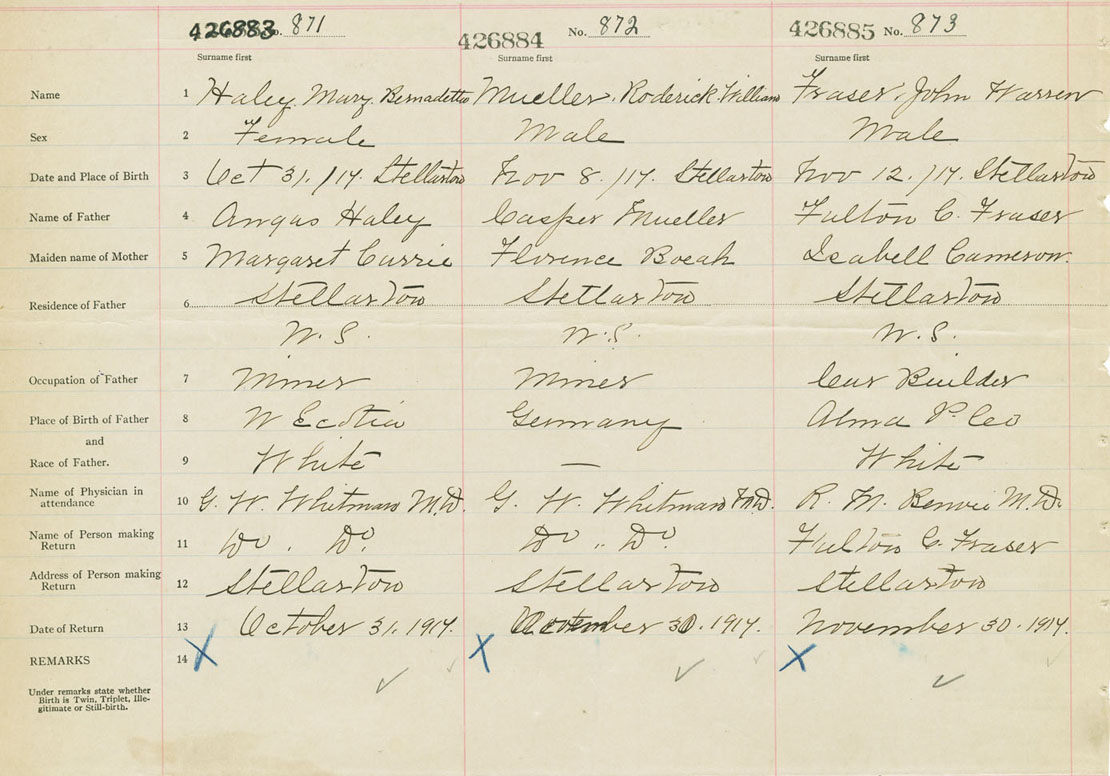 426883 No. 871 426884 No. 872 426885 No. 873
Surname first Surname first Surname first
Name 1 Haley, Mary Bernadette Mueller, Roderick William Fraser, John Warren
Sex 2 Female Male Male
Date and Place of Birth 3 Oct 31. /17. Stellarton Nov 8. /17. Stellarton Nov 12. /17. Stellarton
Name of Father 4 Angus Haley Casper Mueller Fulton C. Fraser
Maiden name of Mother 5 Margaret Currie Florence Isabell Cameron.
Residence of Father 6 Stellarton Stellarton Stellarton
N.S. N.S. N.S.
Occupation of Father 7 Miner Miner Car Builder
Place of Birth of Father 8 N Scotia Germany Alma P. Co
and
Race of Father. 9 White — White
Name of Physician in
attendance 10 G. W. Whitman M.D. G. W. Whitman M.D. R. M. Benvie M.D.
Name of Person making
Return 11 Do . Do. Do „ Do. Fulton C. Fraser
Address of Person making
Return 12 Stellarton Stellarton Stellarton
Date of Return 13 October 31. 1917. November 30. 1917. November 30. 1917.
REMARKS 14
Under remarks state whether
Birth is Twin, Triplet, Ille-
gitimate or Still-birth.